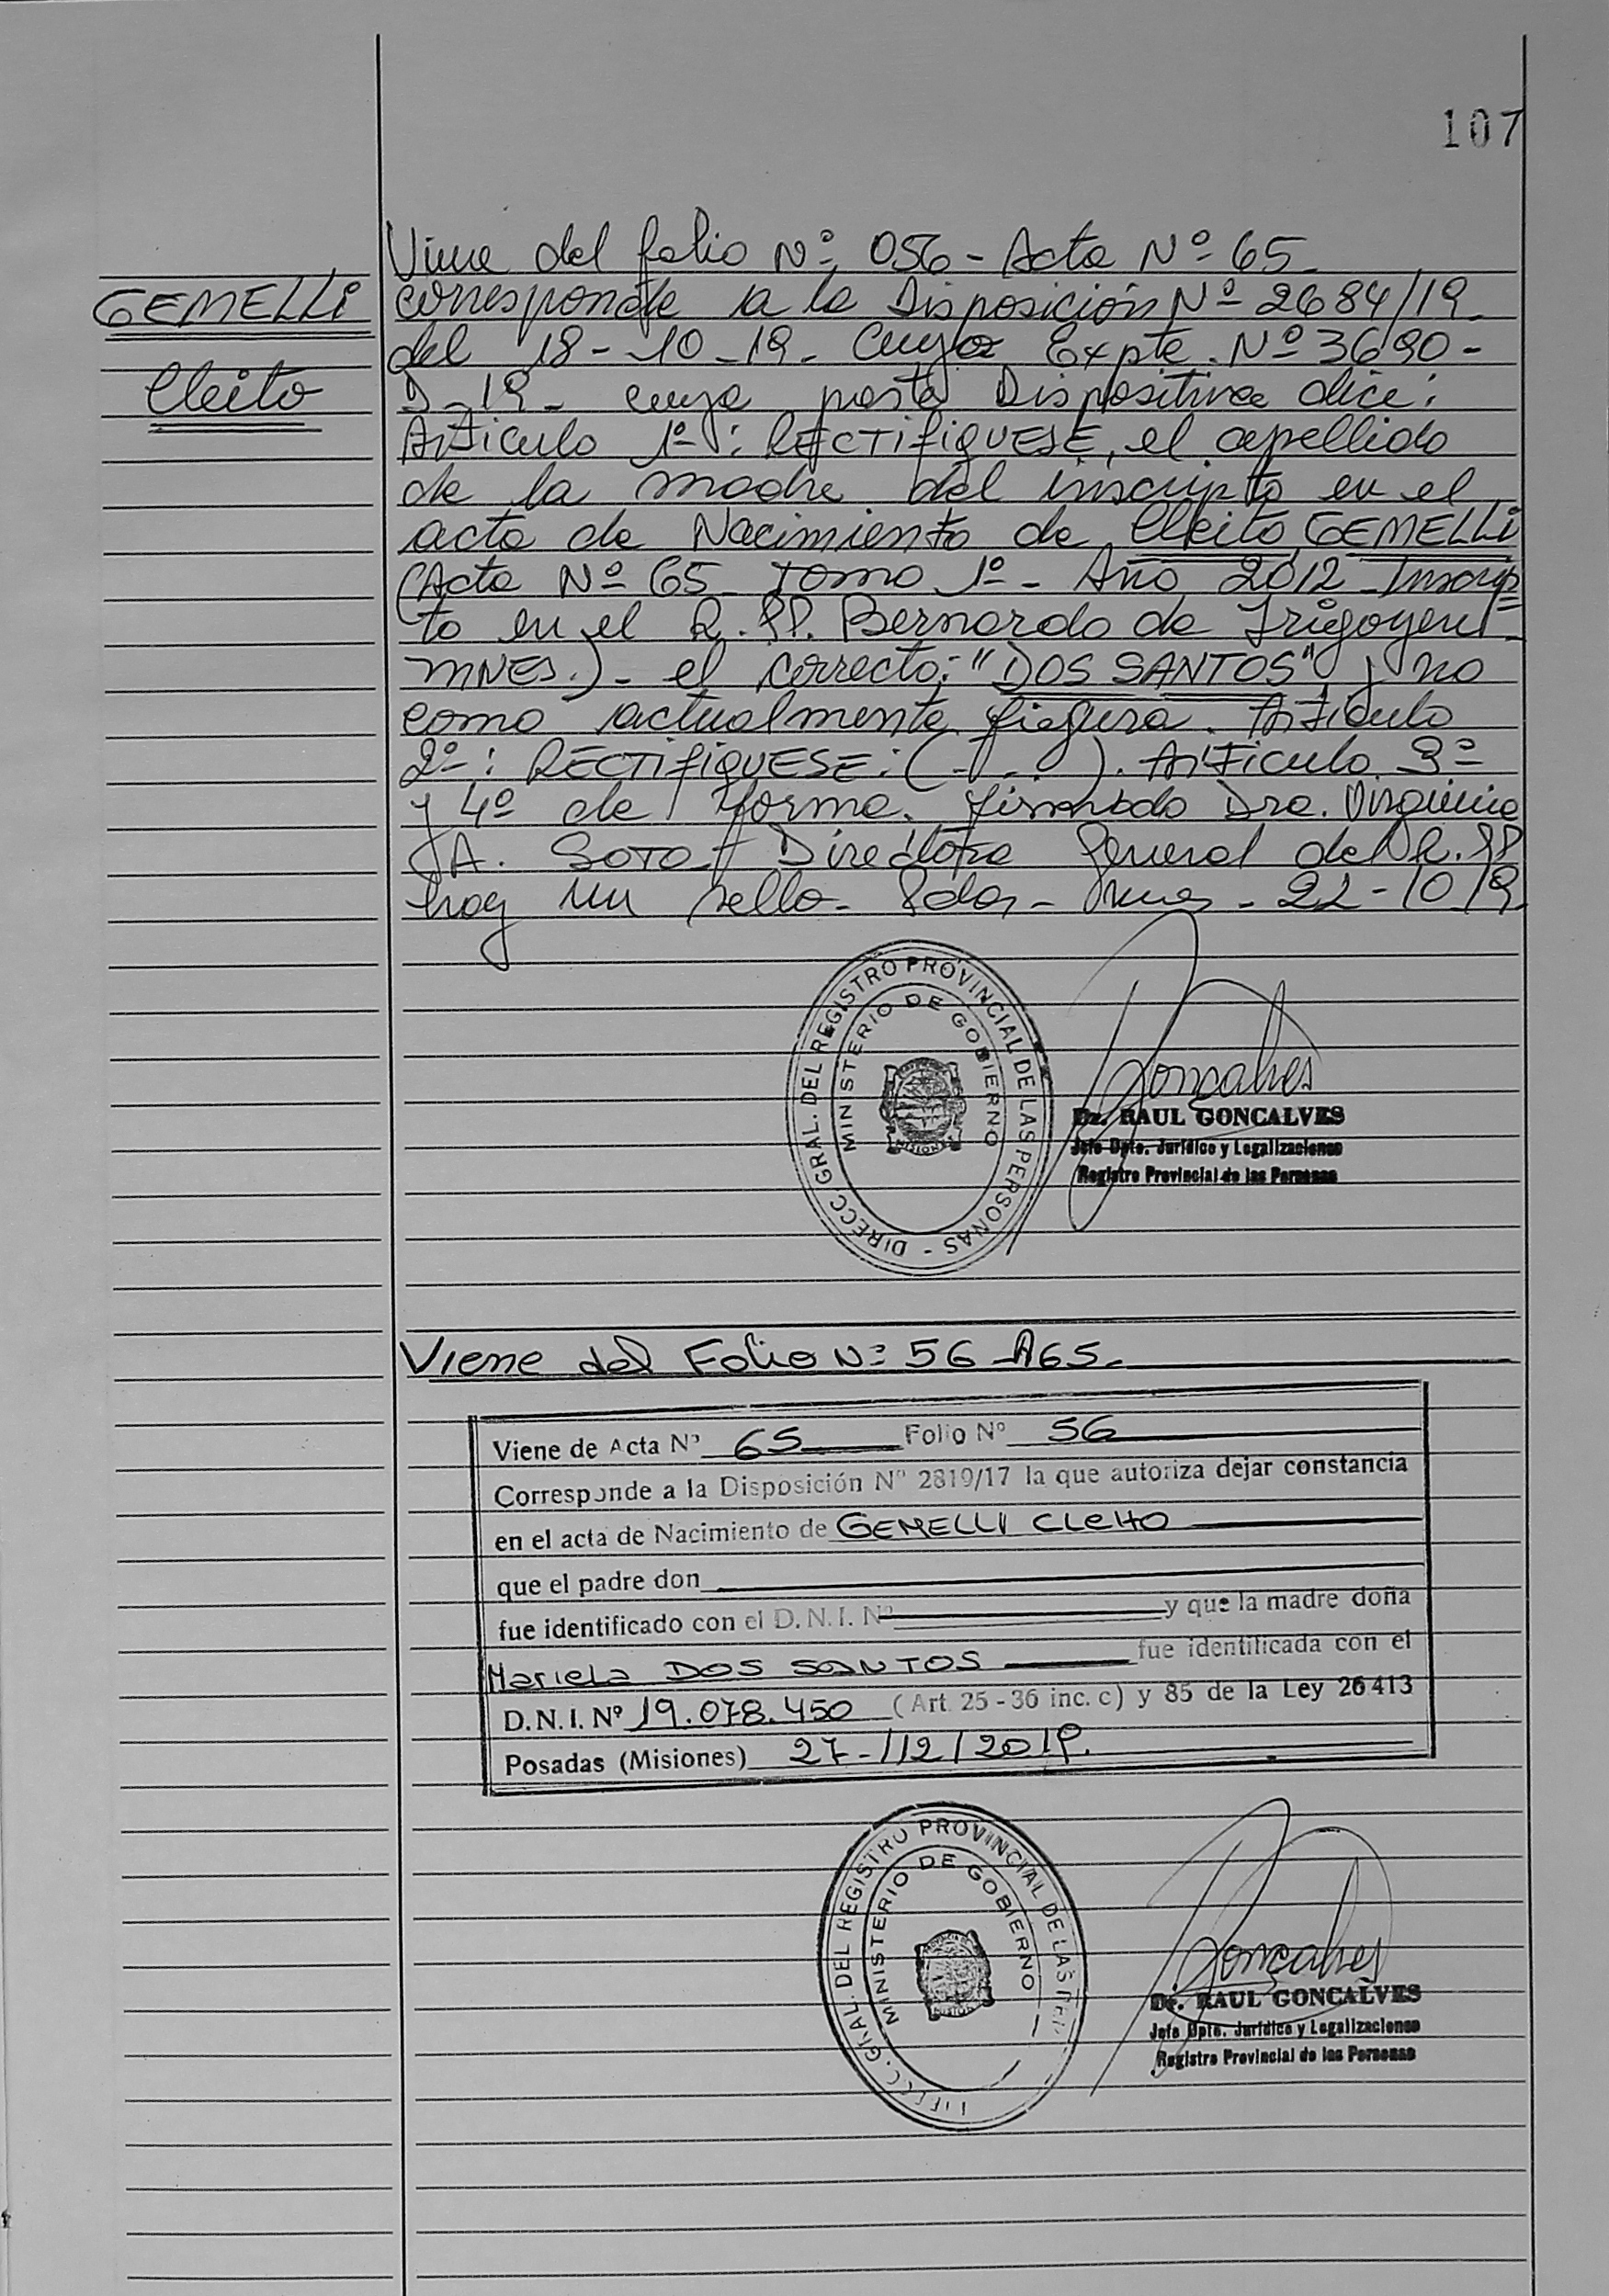 107
Viene del folio Nº 056 - Acta Nº 65
GEMELLI
Cleito
corresponde a la Disposición Nº 2684/19
del 18-10-19- Cuyo Expte. Nº 3690-
D-19- cuya parte Dispositiva dice:
Articulo 1º: RECTIFIQUESE, el apellido
de la madre del inscripto en el
acta de Nacimiento de Cleito GEMELLI
(Acta Nº 65 Tomo 1º - Año 2012 - Inscrip=
to en el R.PP. Bernardo de Irigoyen -
MNES.) - el correcto: "DOS SANTOS" y no
como actualmente figura. Articulo
2º: RECTIFIQUESE: (...). Articulo 3º
y 4º de forma. firmado Dra. Virginia
A. SOTO - Directora General del R.PP
hay un sello - Pdas - Mnes - 22-10-19
DIRECC GRAL. DEL REGISTRO PROVINCIAL DE LAS PERSONAS -
MINISTERIO DE GOBIERNO
MISIONES
Goncalves
Dr. RAUL GONCALVES
Jefe Dpto. Jurídico y Legalizaciones
Registro Provincial de las Personas
Viene del Folio Nº 56 A65.
Viene de Acta Nº 65 Folio Nº 56
Corresponde a la Disposición Nº 2819/17 la que autoriza dejar constancia
en el acta de Nacimiento de GEMELLI Cleito
que el padre don
fue identificado con el D.N.I. Nº y que la madre doña
Mariela DOS SANTOS fue identificada con el
D.N.I. Nº 19.078.450 (Art. 25 - 36 inc. c) y 85 de la Ley 26413
Posadas (Misiones) 27-/12/2019.
DIRECC. GRAL. DEL REGISTRO PROVINCIAL DE LAS
MINISTERIO DE GOBIERNO
Goncalves
Dr. RAUL GONCALVES
Jefe Dpto. Jurídico y Legalizaciones
Registro Provincial de las Personas